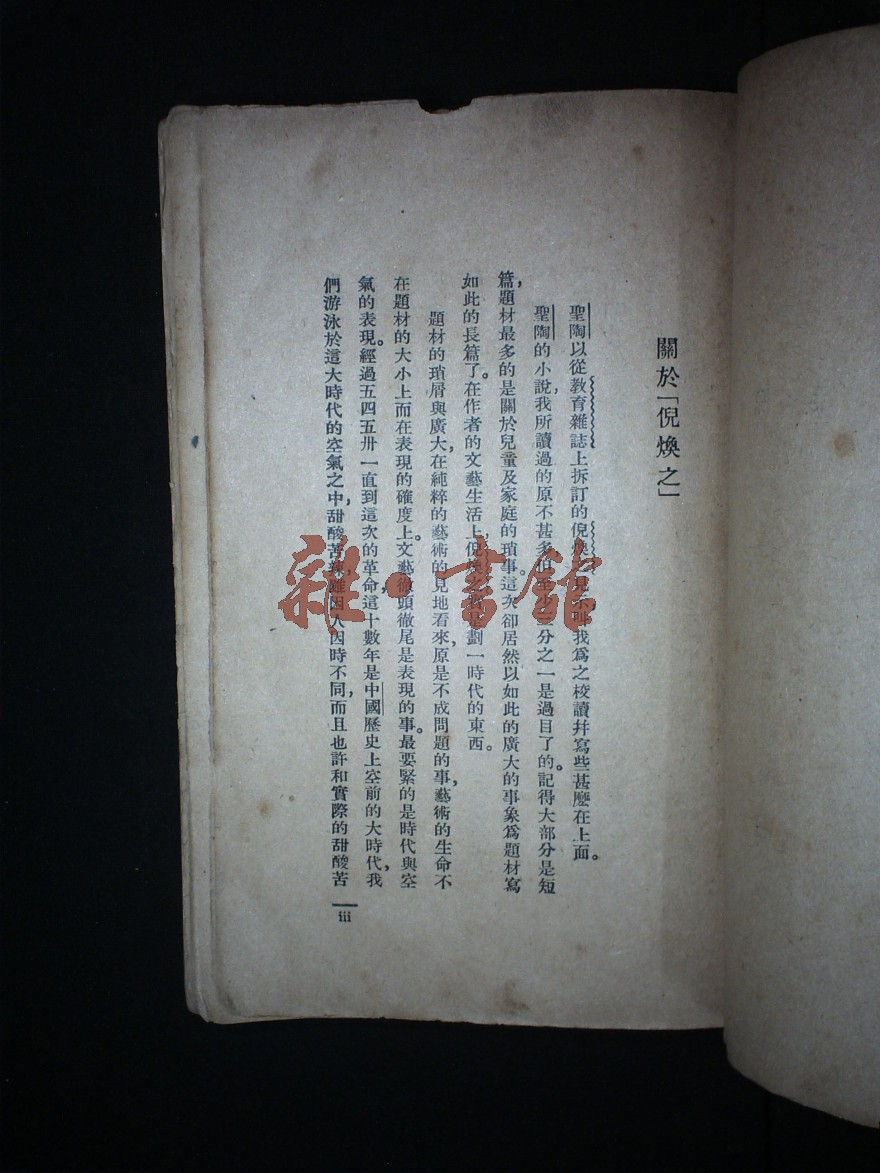 關於「倪煥之」
聖陶以從教育雜誌上拆訂的倪煥之見示叫我爲之校讀幷寫些甚麽在上面。
聖陶的小說,我所讀過的原不甚多,但至少三分之一是過目了的。記得大部分是短
篇,題材最多的是關於兒童及家庭的瑣事。這次卻居然以如此的廣大的事象爲題材寫
如此的長篇了。在作者的文藝生活上,倪煥之 是劃一時代的東西。
題材的瑣屑與廣大,在純粹的藝術的見地看來,原是不成問題的事,藝術的生命不
在題材的大小上而在表現的確度上。文藝徹頭徹尾是表現的事。最要緊的是時代與空
氣的表現。經過五四五卅一直到這次的革命,這十數年是中國歷史上空前的大時代,我
們游泳於這大時代的空氣之中,甜酸苦辣,雖因人因時不同,而且也許和實際的甜酸苦
iii
雜·書館